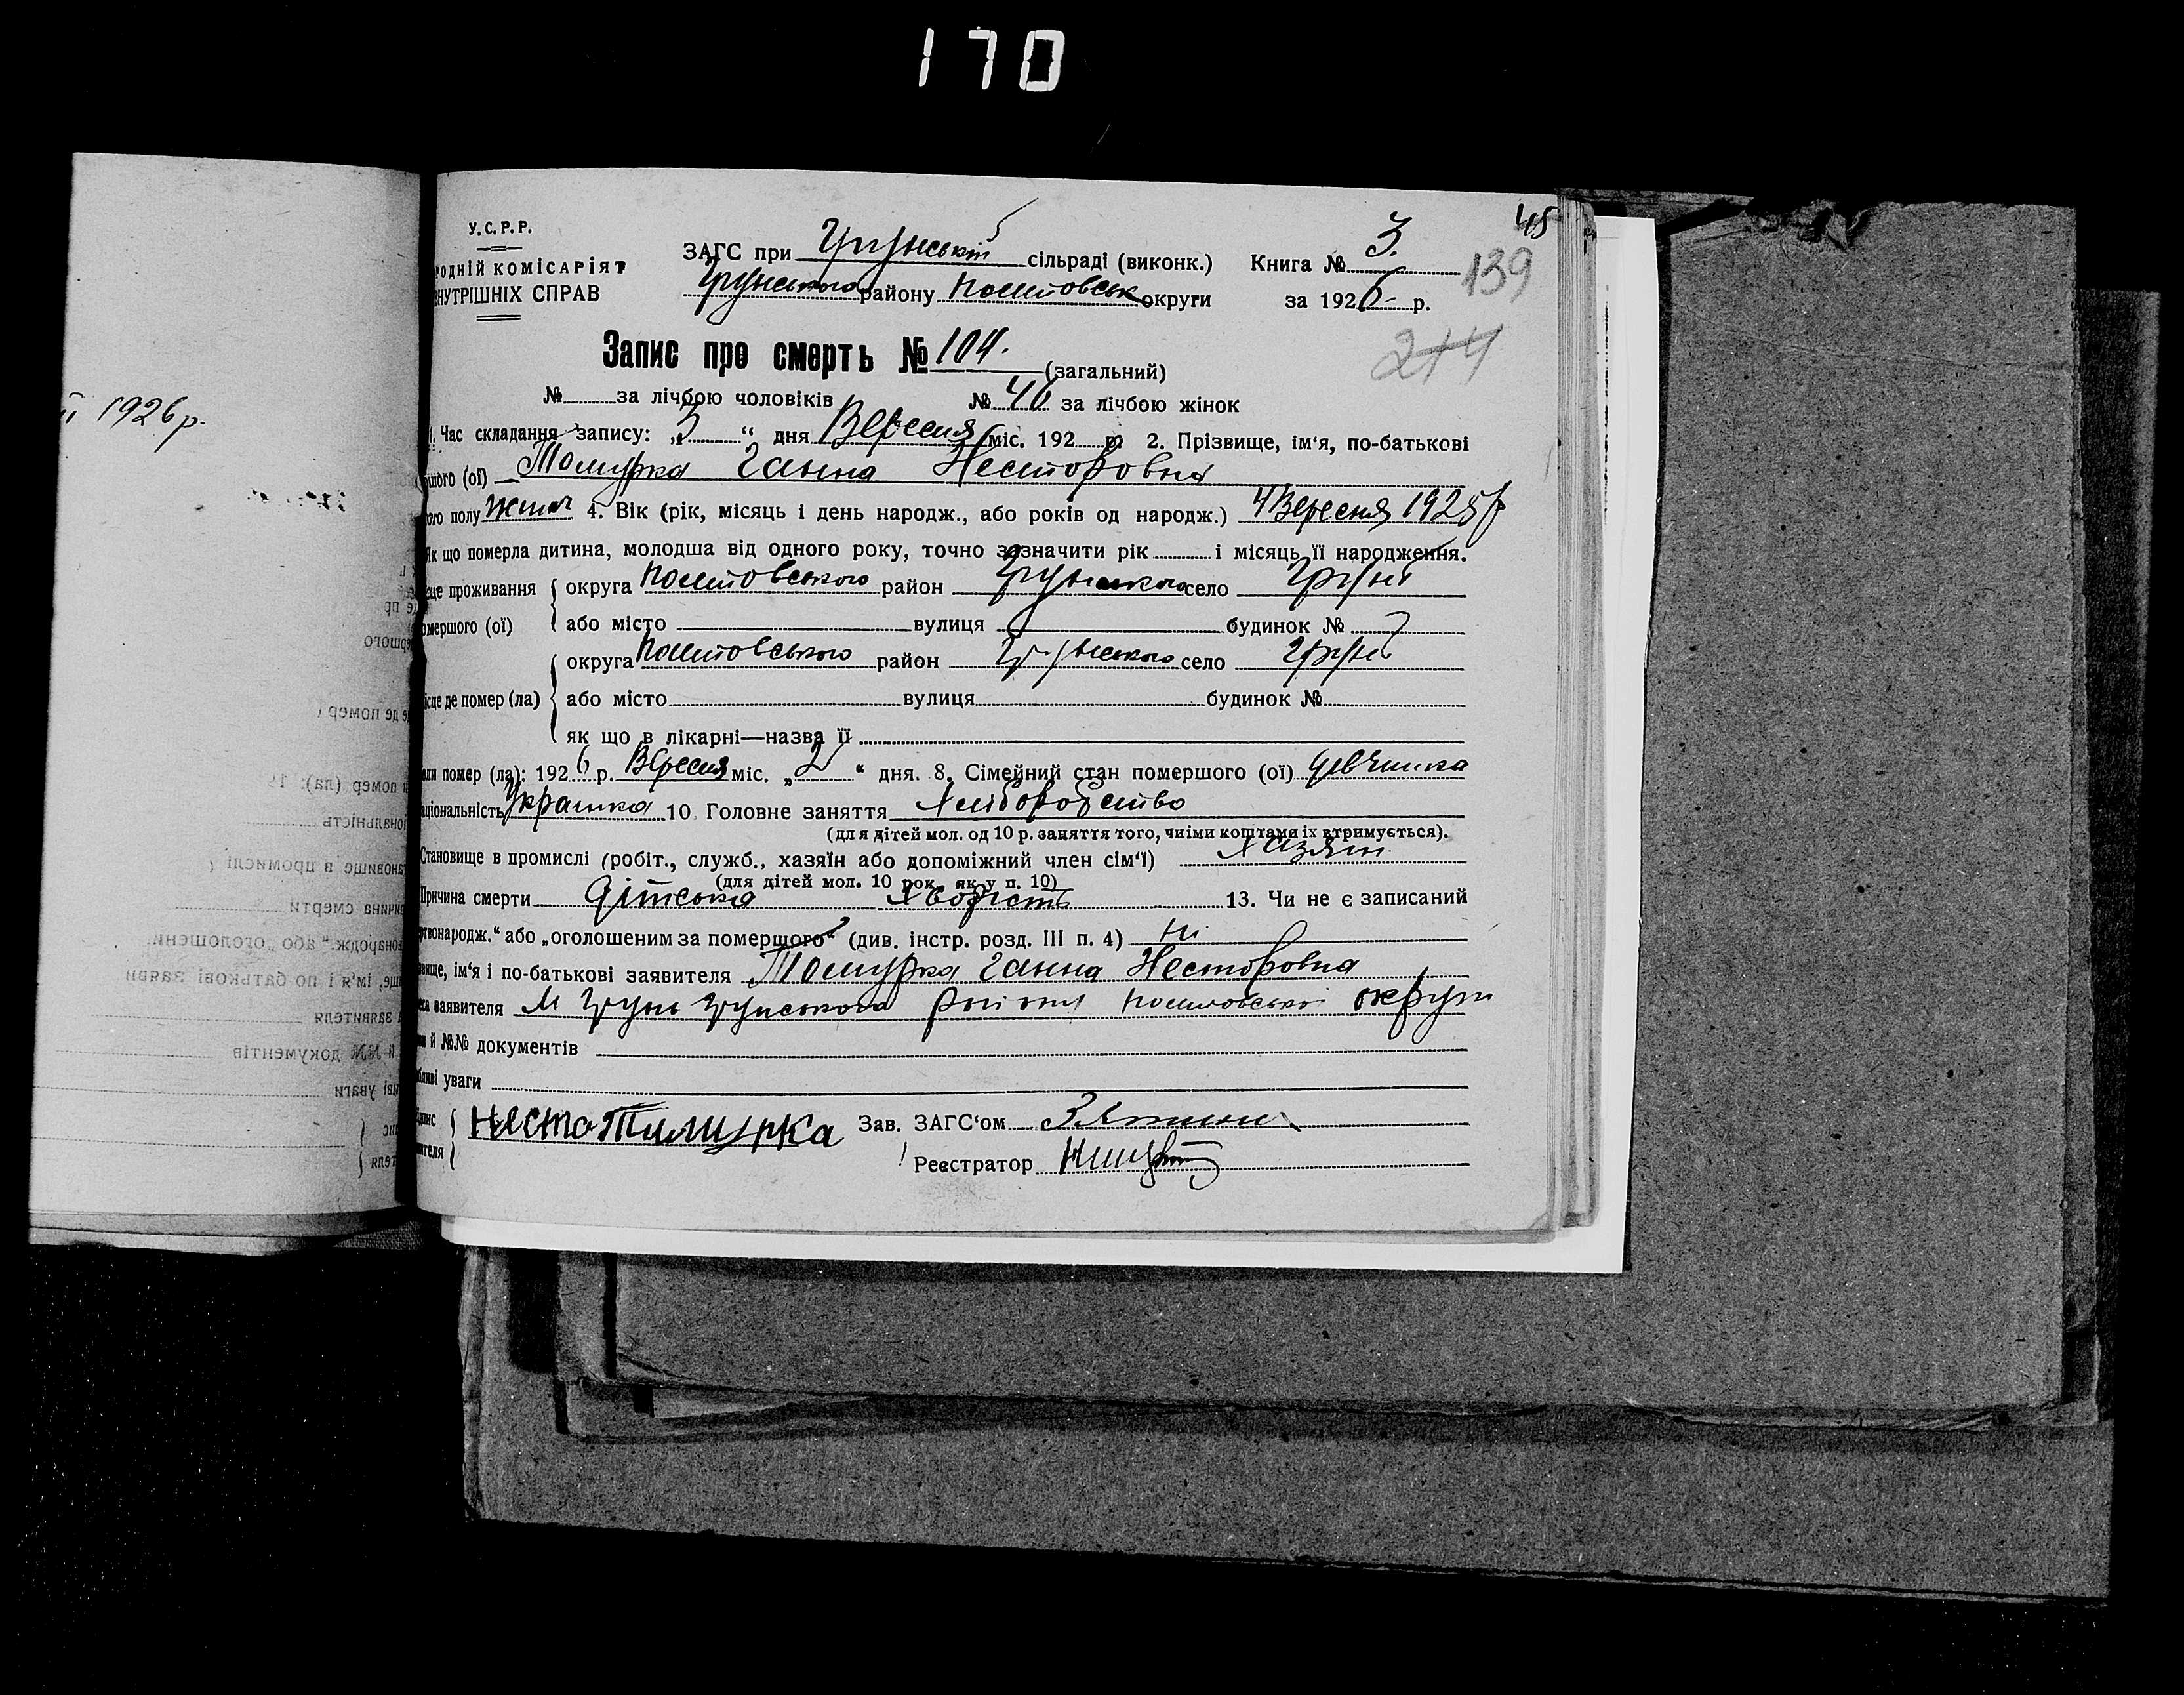 170
45
У.С.Р.Р.
РОДНІЙ КОМІСАРІЯТ
НУТРІШНІХ СПРАВ
ЗАГС при Грунській сільраді (виконк.) Книга № 3.
Грунського району Полтовськ округи за 1926 р.
139
Запис про смерть № 104. (загальний)
244
№ за лічбою чоловіків № 46 за лічбою жінок
ії 1926 р.
1. Час складання запису: „3“ дня Вересня міс. 192 р. 2. Прізвище, ім‘я, по-батькові
ршого (ої) Ганна Несторовна
ого полу жіноч 4. Вік (рік, місяць і день народж., або років од народж.) 4 Вересня 1925 р
Як що померла дитина, молодша від одного року, точно зазначити рік і місяць її народження.
сце проживання округа Полтовського район Грунського село Грунь
омершого (ої) або місто вулиця будинок №
округа Полтовського район Грунського село Грунь
ісце де помер (ла) або місто вулиця будинок №
як що в лікарні—назва її
оли помер (ла): 1926 р. Вересня міс. „2“ дня. 8. Сімейний стан помершого (ої) дівчинка
аціональність Українка 10. Головне заняття Хліборобство
(для дітей мол. од 10 р. заняття того, чиїми коштами їх втримується).
Становище в промислі (робіт., служб., хазяїн або допоміжний член сім‘ї) хазяїн
(для дітей мол. 10 рок. як у п. 10)
Причина смерти Дітська хворість 13. Чи не є записаний
ртвонародж.“ або „оголошеним за помершого“ (див. інстр. розд. III п. 4) ні
звище, ім‘я і по-батькові заявителя Ганна Несторовна
еса заявителя М Грунь Грунського району Полтовської округи
й №№ документів
бливі уваги
Підпис
вителя
Зав. ЗАГС‘ом
Реєстратор